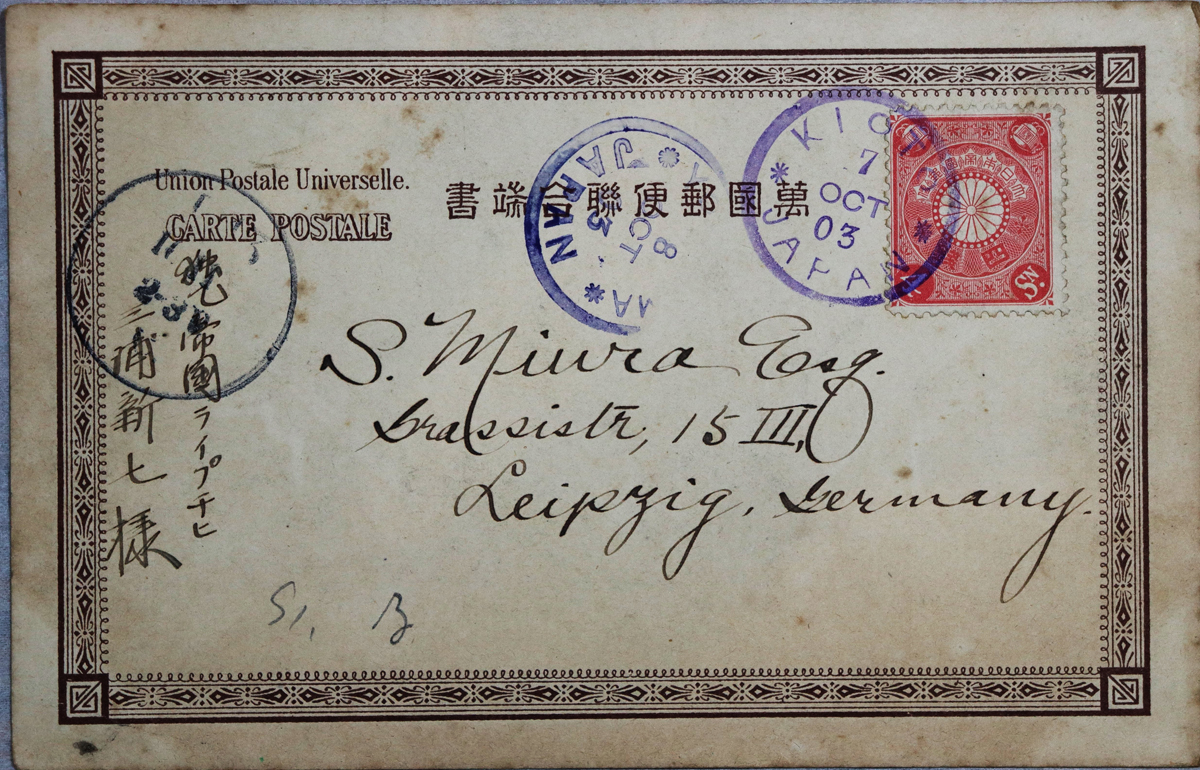 Union Postale Universelle.
CARTE POSTALE
萬國郵便聯合端書
KIOTO
7
OCT
03
JAPAN
JAPAN
8
OCT
3
Sɴ
S. Miura Esq.
Grassistr, 15 III,
Leipzig, Germany.
獨帝國ライプチヒ
三浦新七様